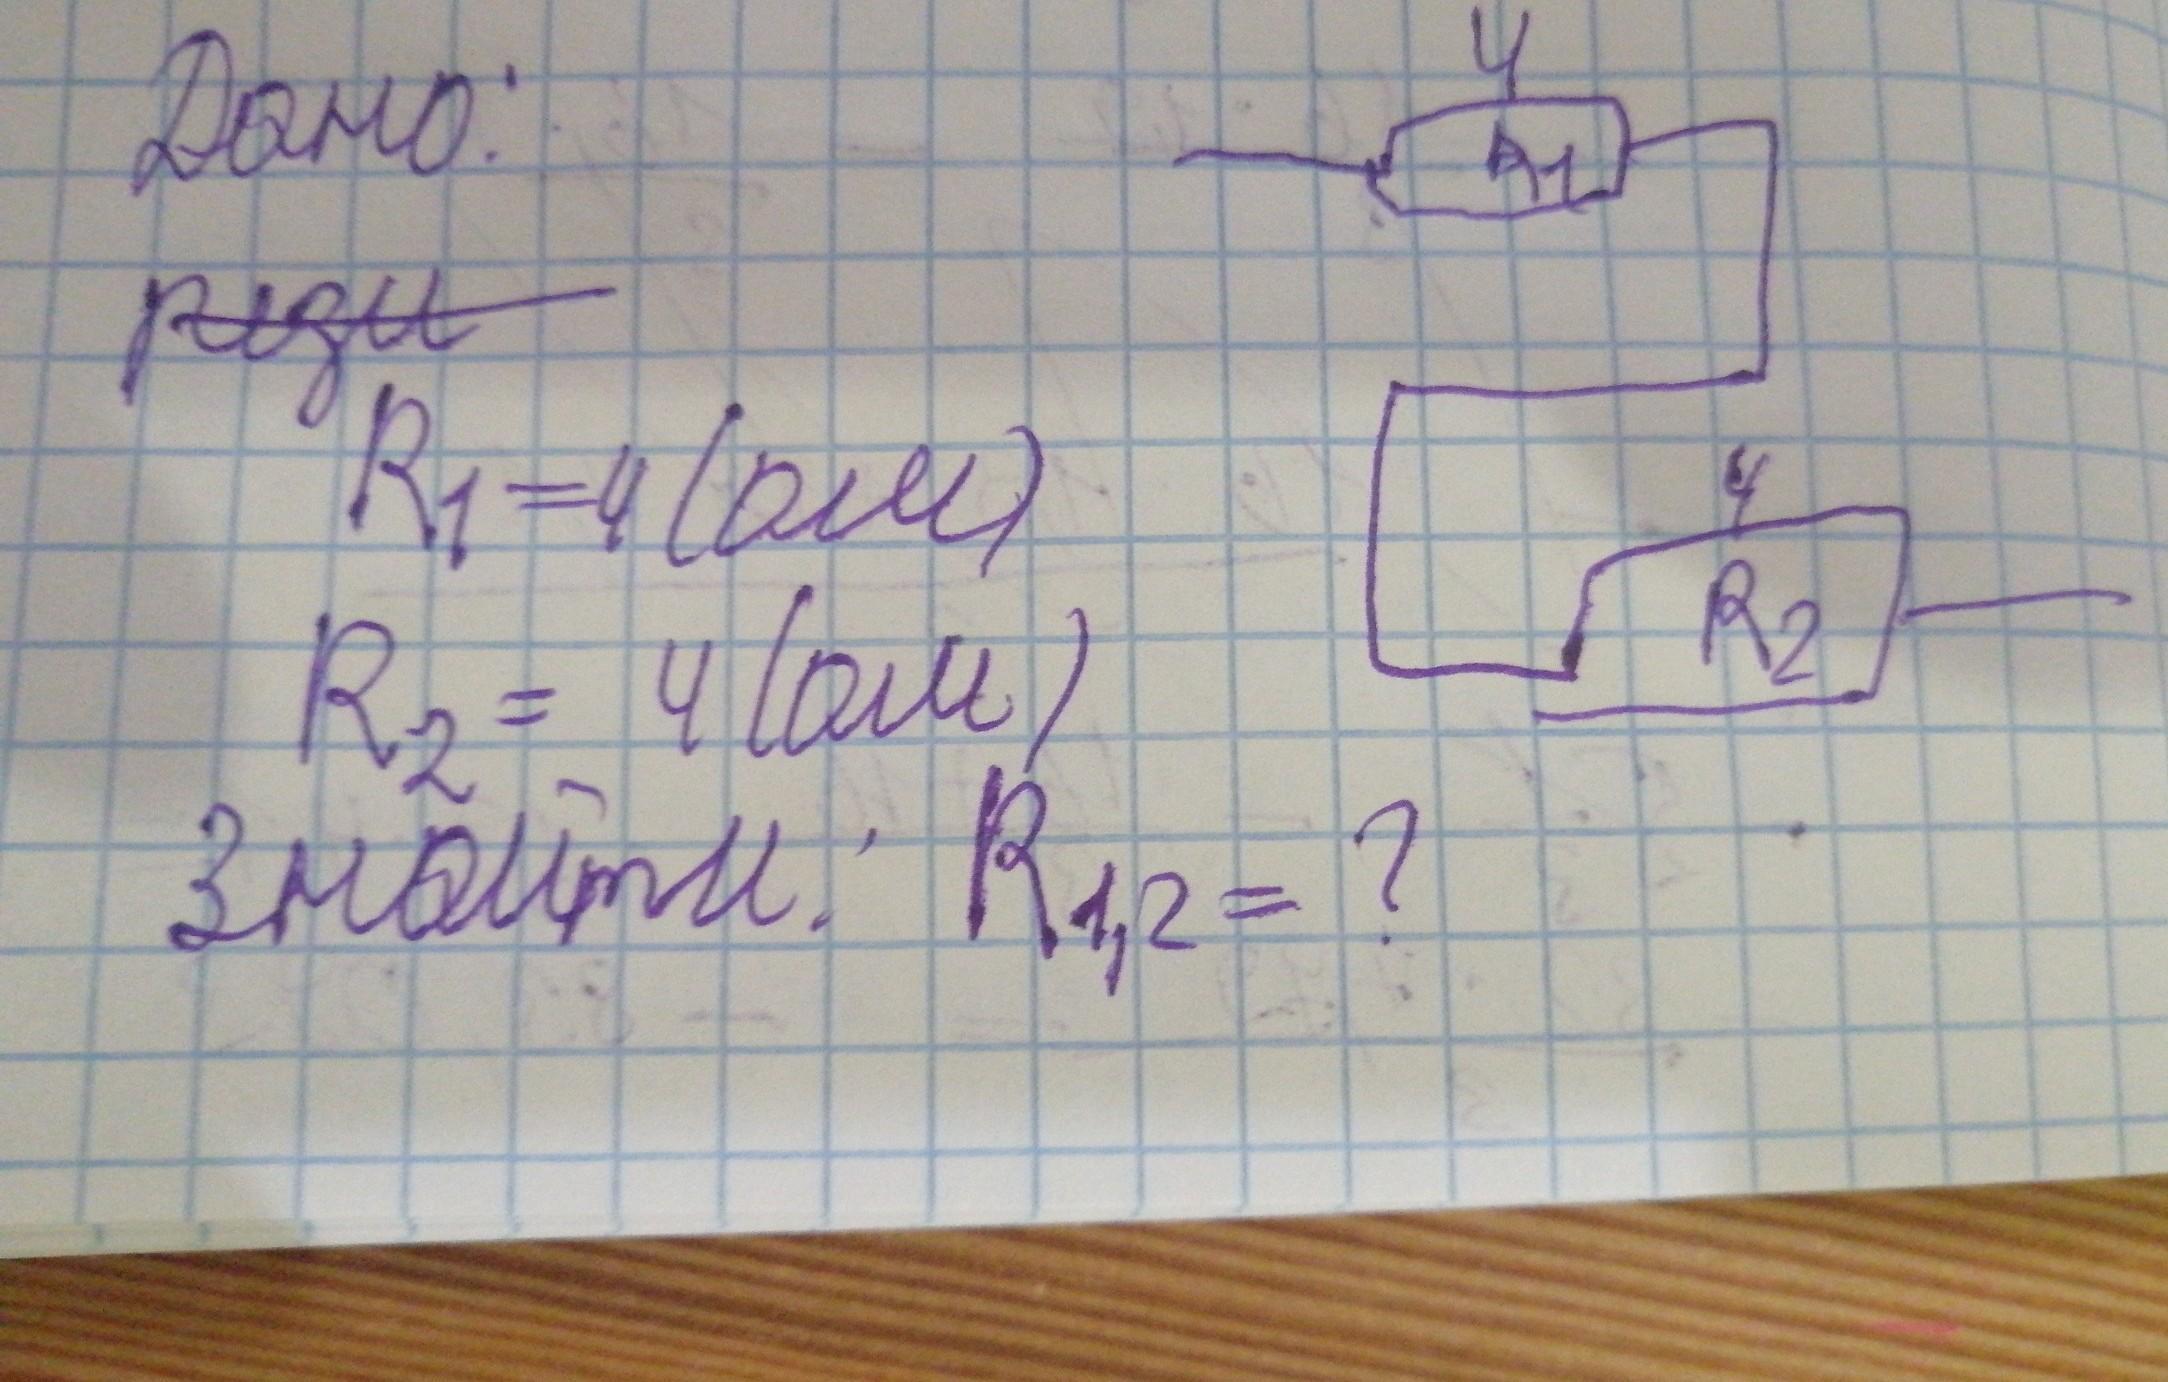 Дано:
рези
R1 = 4 (ом)
R2 = 4 (ом)
Знайти: R1,2 = ?
4
R1
4
R2